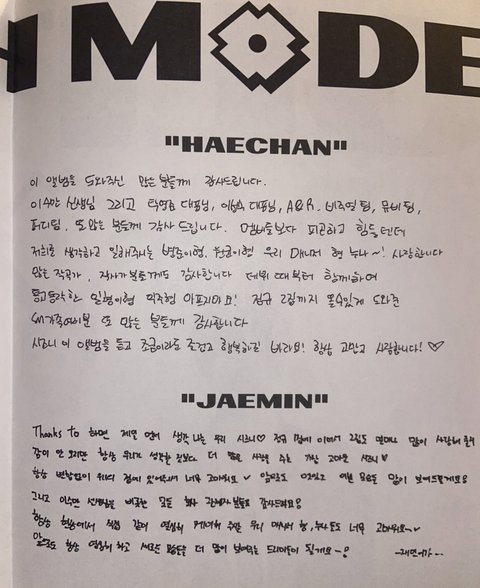 H MODE
"HAECHAN"
이 앨범을 도와주신 많은 분들께 감사드립니다.
이수만 선생님 그리고 탁영준 대표님, 이성수 대표님, A&R, 비주얼 팀, 뮤비 팀,
퍼디팀, 또 많은 분들께 감사 드립니다. 멤버들보다 피곤하고 힘들텐데
저희를 생각하고 일해주시는 병준이형, 원균이형 우리 매니저 형 누나~! 사랑합니다
많은 작곡가, 작사가분들께도 감사합니다 데뷔 때부터 함께하며
동고동락한 일현이형 아프지마요! 정규 2집까지 올수있게 도와준
SM가족여러분 또 많은 분들께 감사합니다
시즈니 이 앨범을 듣고 조금이라도 즐겁고 행복하길 바라요! 항상 고맙고 사랑합니다! ♡
"JAEMIN"
Thanks to 하면 제일 먼저 생각 나는 우리 시즈니♡ 정규 1집에 이어서 2집도 얼마나 많이 사랑해 줄지
감이 안 오지만 항상 우리가 생각한 것보다 더 많은 사랑을 주는 가장 고마운 시즈니♡
항상 변함없이 우리 곁에 있어줘서 너무 고마워요 앞으로도 멋있고 예쁜 모습들 많이 보여드릴게요!
그리고 이수만 선생님을 비롯한 모든 회사 관계자 분들도 감사드려요!
항상 현장에서 직접 같이 열심히 케어해 주신 우리 매니저 형, 누나들도 너무 고마워요~
앞으로도 항상 열심히 하고 새로운 모습들을 더 많이 보여주는 드림이들이 될게요~!
-재민이가-